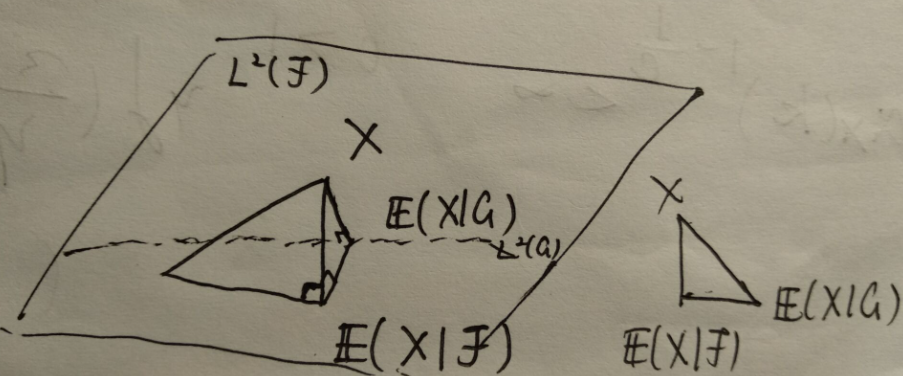 L²(F)
X
E(X|G)
L²(G)
E(X|F)
X
E(X|F)
E(X|G)